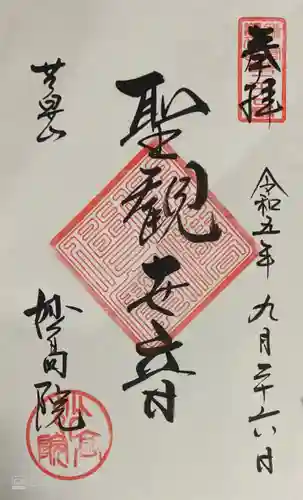 奉拝
令和五年九月二十六日
聖観世音
妙高院